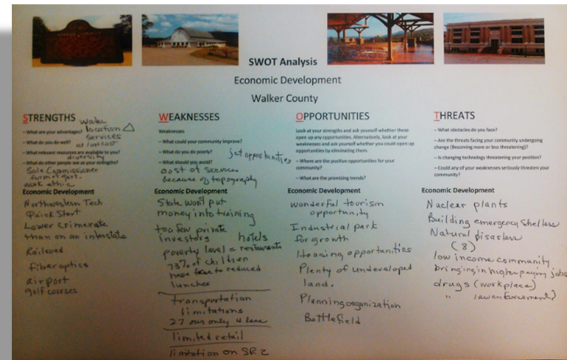 SWOT Analysis
Economic Development
Walker County
STRENGTHS
water
location
- What are your advantages?
services
- What do you do well?
at low cost
- What relevant resources are available to you?
diversity
- What do other people see as your strengths?
Sole Commissioner
form of govt.
work ethic
Economic Development
Northwestern Tech
Quick Start
Lower crime rate
than on an interstate
Railroad
Fiber optics
Airport
golf courses
WEAKNESSES
Weaknesses
- What could you improve?
- What do you do poorly?
job opportunities
- What should you avoid?
cost of services
because of topography
Economic Development
State won't put
money into training
too few private
investors hotels
poverty level & restaurants
73% of children
free to reduced
lunches
transportation
limitations
27 our only 4 lane
limited retail
limitation on SR 2
OPPORTUNITIES
Look at your strengths and ask yourself whether these
open up any opportunities. Alternatively, look at your
weaknesses and ask yourself whether you could open up
opportunities by eliminating them.
- Where are the positive opportunities for your
community?
- What are the promising trends?
Economic Development
wonderful tourism
opportunity
Industrial park
for growth
Housing opportunities
Plenty of undeveloped
land.
Planning organization
Battlefield
THREATS
- What obstacles do you face?
- Are the threats facing your community undergoing
change (Becoming more or less threatening)?
- Is changing technology threatening your position?
- Could any of your weaknesses seriously threaten your
community?
Economic Development
Nuclear plants
Building emergency shelters
Natural disasters
(8)
low income community
bringing in higher paying jobs
drugs (workplace)
" law enforcement)